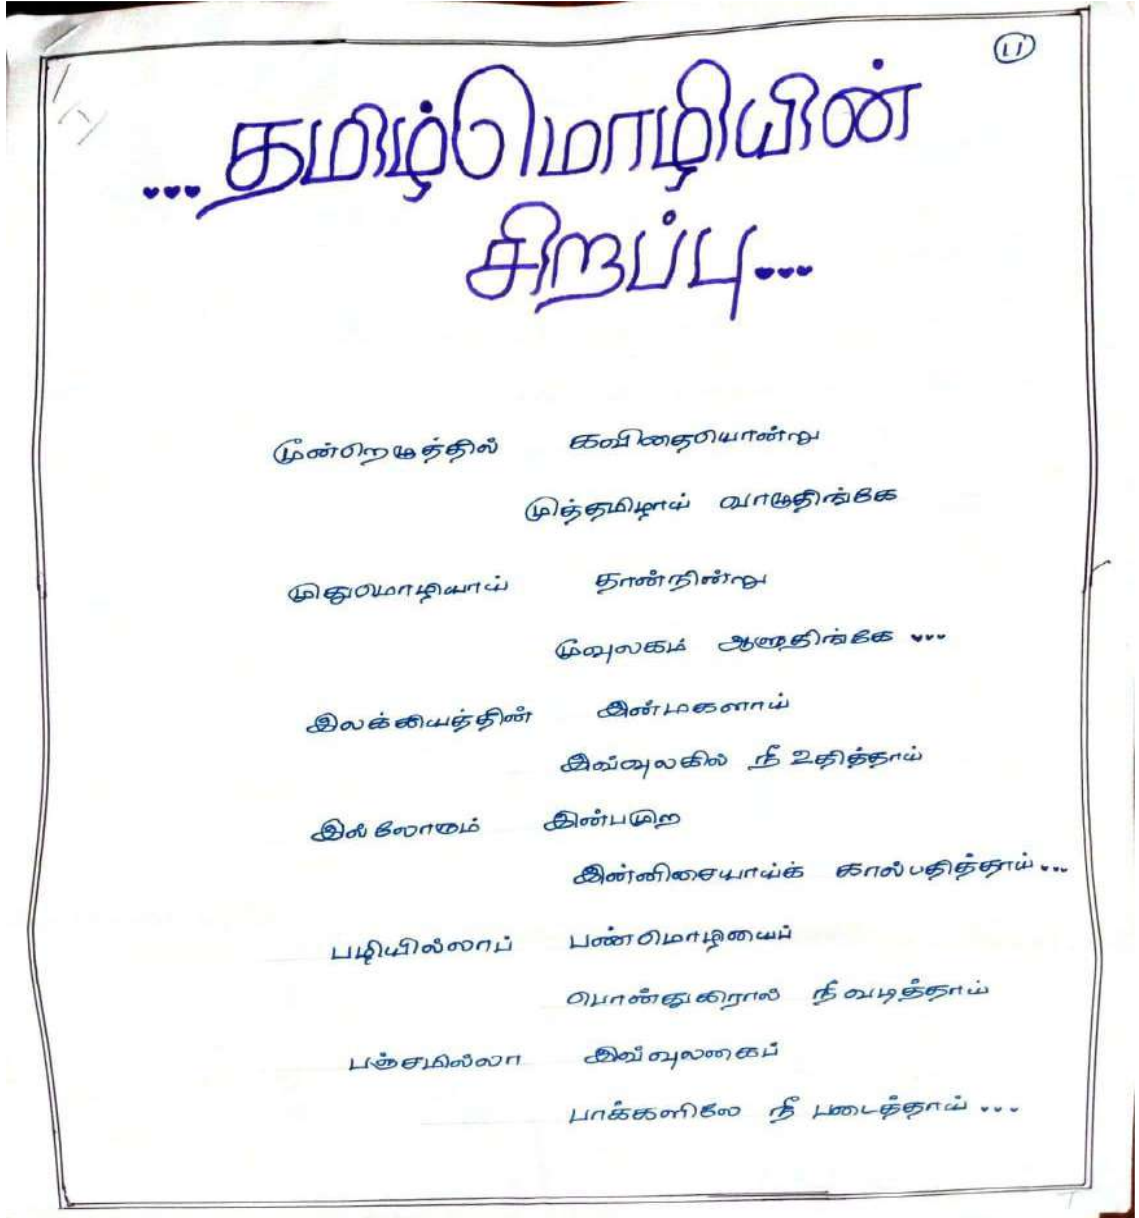 ...தமிழ்மொழியின்
சிறப்பு...
மூன்றெழுத்தில் கவிதையொன்று
முத்தமிழாய் வாழுதிங்கே
முதுமொழியாய் தான்நின்று
மூவுலகம் ஆளுதிங்கே ...
இலக்கியத்தின் இன்மகளாய்
இவ்வுலகில் நீ உதித்தாய்
இல்லோரும் இன்பமுற
இன்னிசையாய்க் கால்பதித்தாய்...
பழியில்லாப் பண்மொழியைப்
பொன்துகிரால் நீ வடித்தாய்
பஞ்சமில்லா இவ்வுலகைப்
பாக்களிலே நீ படைத்தாய் ...